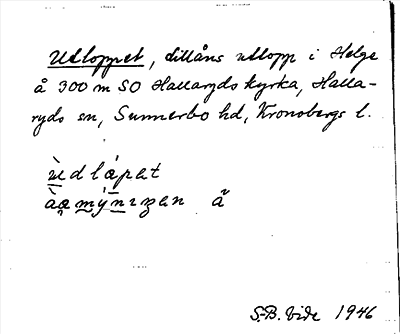 Utloppet, Lillåns utlopp i Helge
å 300 m SO Hallaryds kyrka, Halla-
ryds sn, Sunnerbo hd, Kronobergs l.
ùdlápət
S.-B. Vide 1946